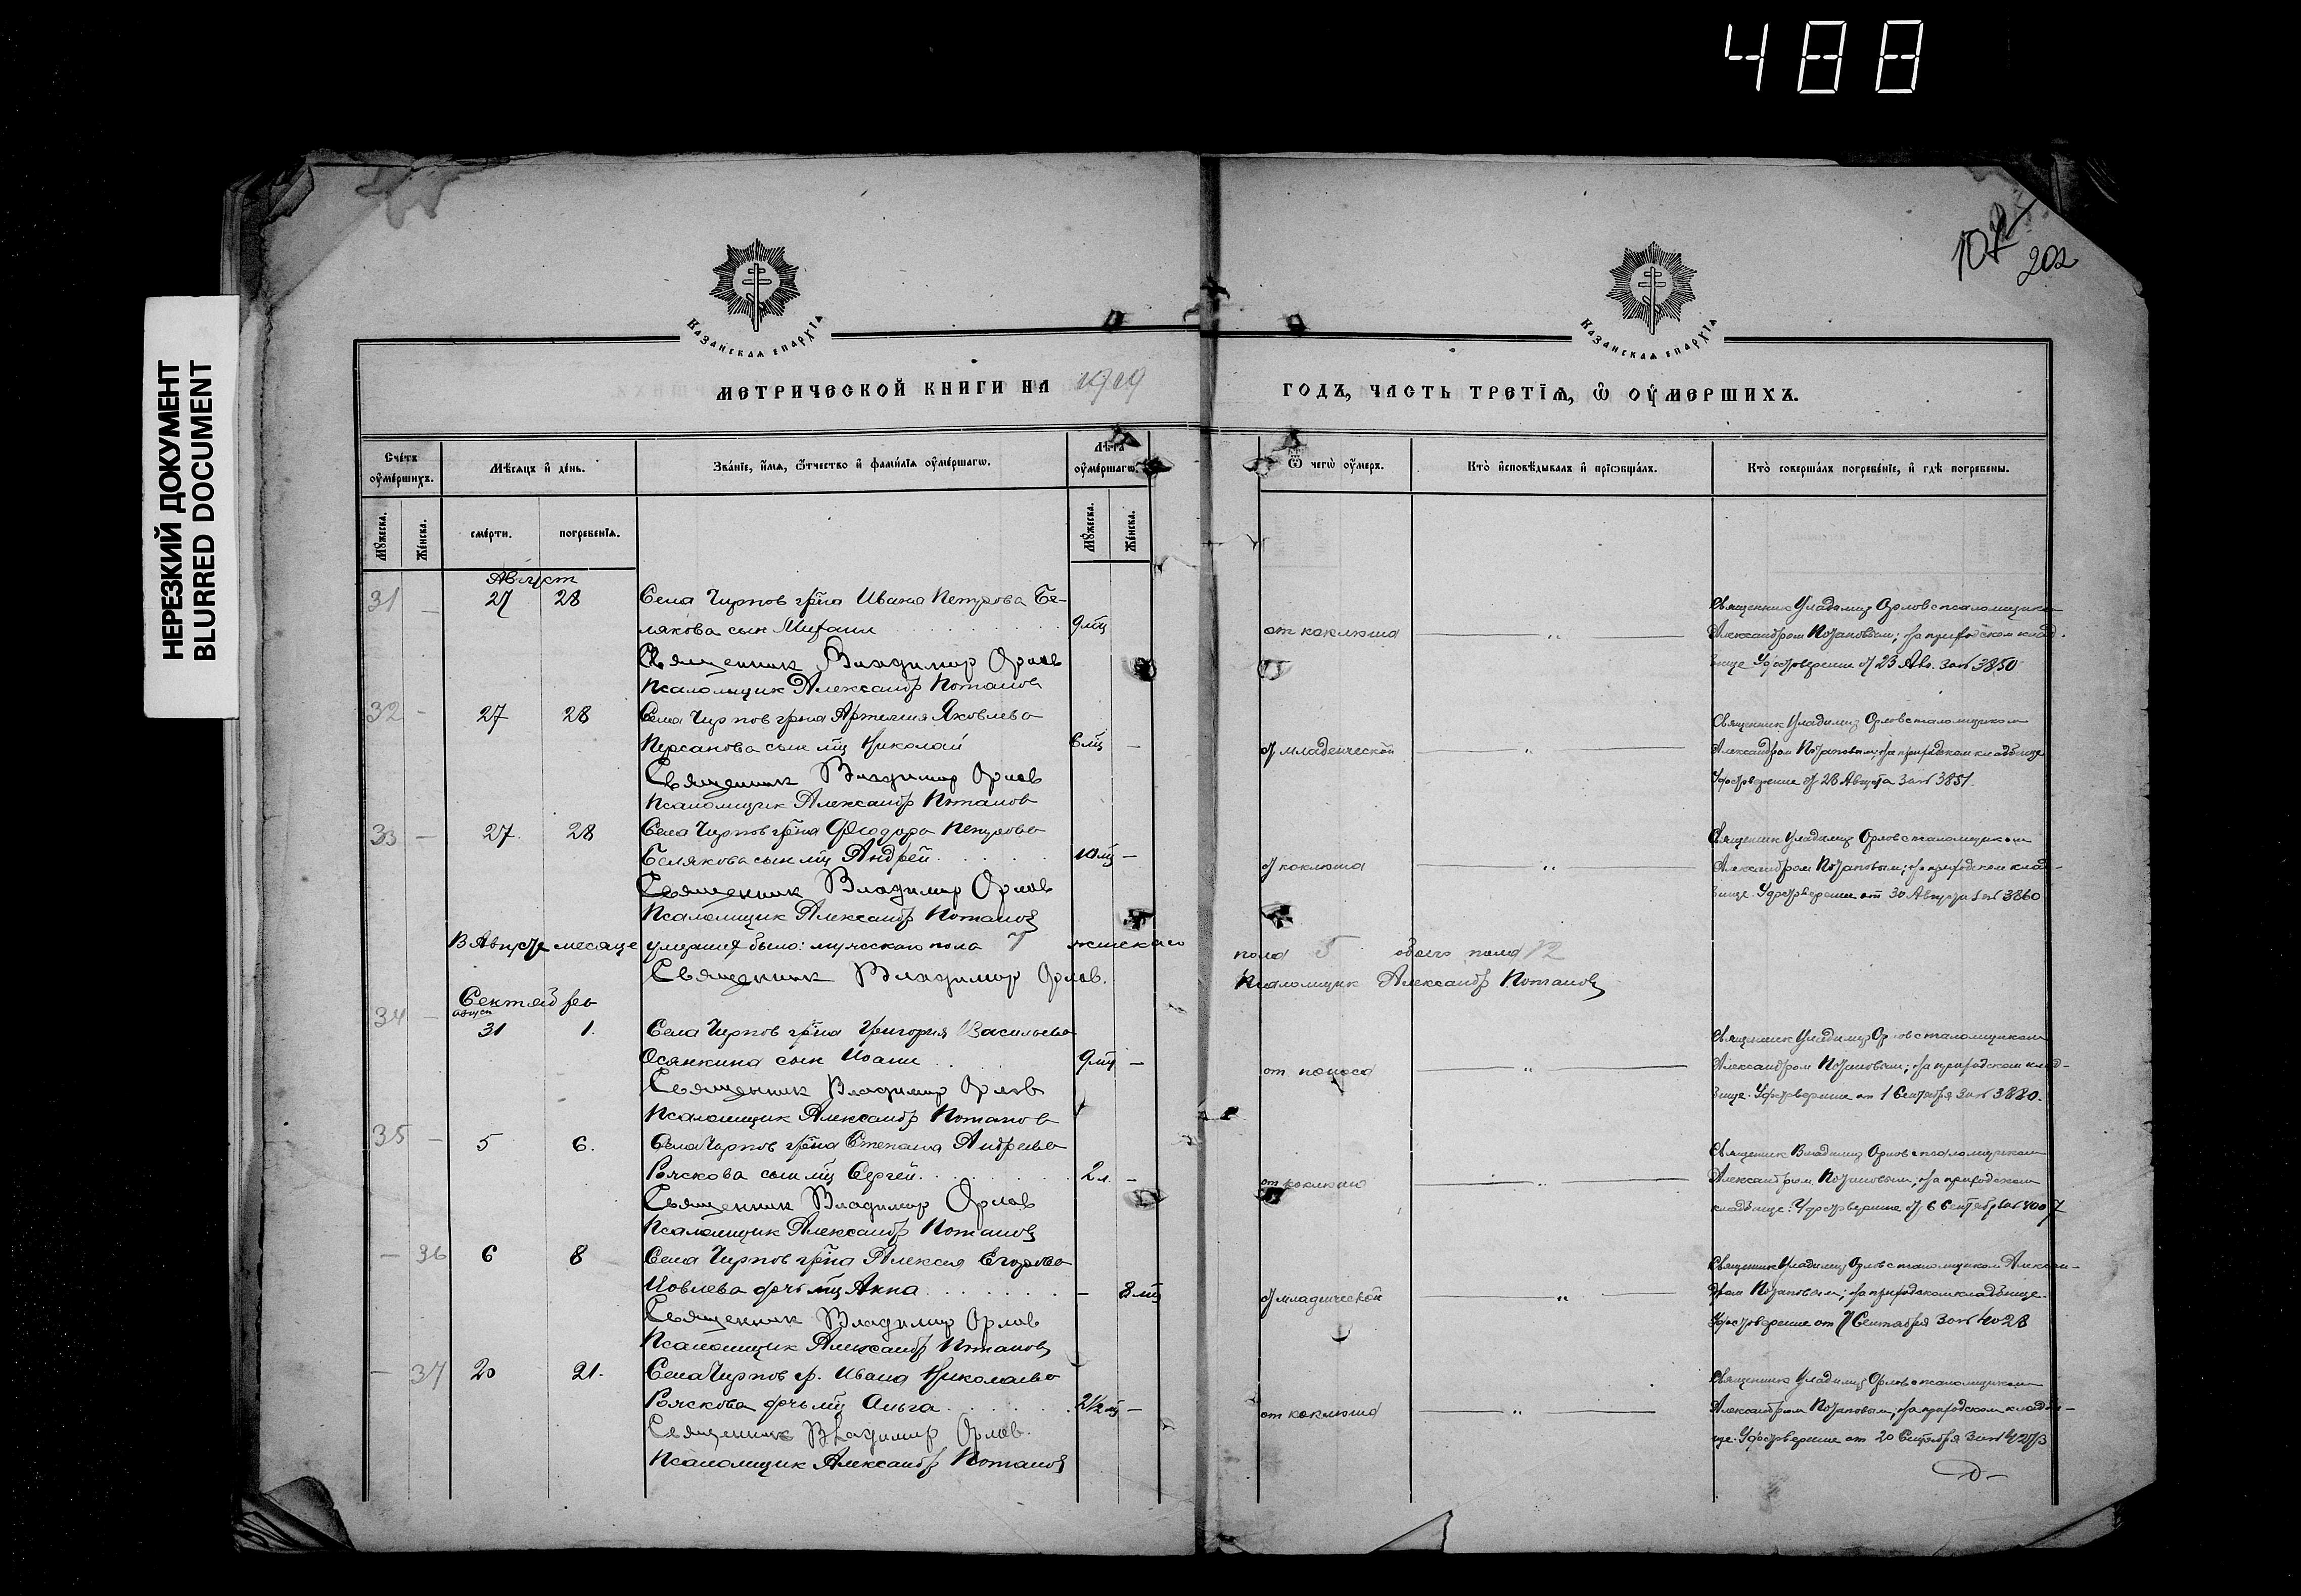 488
НЕРЕЗКИЙ ДОКУМЕНТ
BLURRED DOCUMENT
202
КАЗАНСКАЯ ЕПАРХІЯ
КАЗАНСКАЯ ЕПАРХІЯ
МЕТРИЧЕСКОЙ КНИГИ НА 1919 ГОДЪ, ЧАСТЬ ТРЕТІЯ, Ѿ ОУМЕРШИХЪ.
Счетъ оумершихъ.
Мѣсяцъ и день.
Званіе, имя, отчество и фамилія оумершагω.
Лѣта оумершагω.
Ѿ чегω оумеръ.
Кто исповѣдывалъ и пріωбщалъ.
Кто совершалъ погребеніе, и гдѣ погребены.
Мужеска.
Женска.
смерти.
погребенія.
Мужеска.
Женска.
Август
31 — 27 28 Села Чирпов гр-на Ивана Петрова Бе-
лякова сын Михаил 9 мц от коклюша
Священник Владимир Орлов с псаломщиком
Александром Потаповым; на приходском клад-
бище. Удостоверение от 28 Авг. за № 3850
Священник Владимир Орлов
Псаломщик Александр Потапов
32 — 27 28 Села Чирпов гр-на Артемия Яковлева
Кирсанова сын мц Николай 6 мц — от младенческой
Священник Владимир Орлов с псаломщиком
Александром Потаповым; на приходском кладбище
Удостоверение от 28 Августа за № 3851.
Священник Владимир Орлов
Псаломщик Александр Потапов
33 — 27 28 Села Чирпов гр-на Феодора Петрова
Белякова сын мц Андрей 10 мц — от коклюша
Священник Владимир Орлов с псаломщиком
Александром Потаповым; на приходском клад-
бище. Удостоверение от 30 Августа за № 3860
Священник Владимир Орлов
Псаломщик Александр Потапов
В Августе месяце умерших было: мужского пола 7 женского пола 5 обоего пола 12
Священник Владимир Орлов. Псаломщик Александр Потапов
Сентябрь
август
34 — 31 1. Села Чирпов гр-на Григория Васильева
Осянкина сын Иоанн 9 мц — от поноса
Священник Владимир Орлов с псаломщиком
Александром Потаповым; на приходском клад-
бище. Удостоверение от 1 Сентября за № 3880.
Священник Владимир Орлов
Псаломщик Александр Потапов
35 — 5 6. Села Чирпов гр-на Степана Андреева
Ряскова сын мц Сергей 2 л. — от коклюша
Священник Владимир Орлов с псаломщиком
Александром Потаповым; на приходском
кладбище. Удостоверение от 6 Сентября за № 4007
Священник Владимир Орлов
Псаломщик Александр Потапов
— 36 6 8 Села Чирпов гр-на Алексея Егорова
Иовлева дочь мц Анна — 8 мц от младенческой
Священник Владимир Орлов с псаломщиком Алексан-
дром Потаповым; на приходском кладбище.
Удостоверение от 7 Сентября за № 4028
Священник Владимир Орлов
Псаломщик Александр Потапов
— 37 20 21. Села Чирпов гр. Ивана Николаева
Ряскова дочь мц Ольга 2½ м — от коклюша
Священник Владимир Орлов с псаломщиком
Александром Потаповым; на приходском кладби-
ще. Удостоверение от 20 Сентября за № 4273
Священник Владимир Орлов.
Псаломщик Александр Потапов